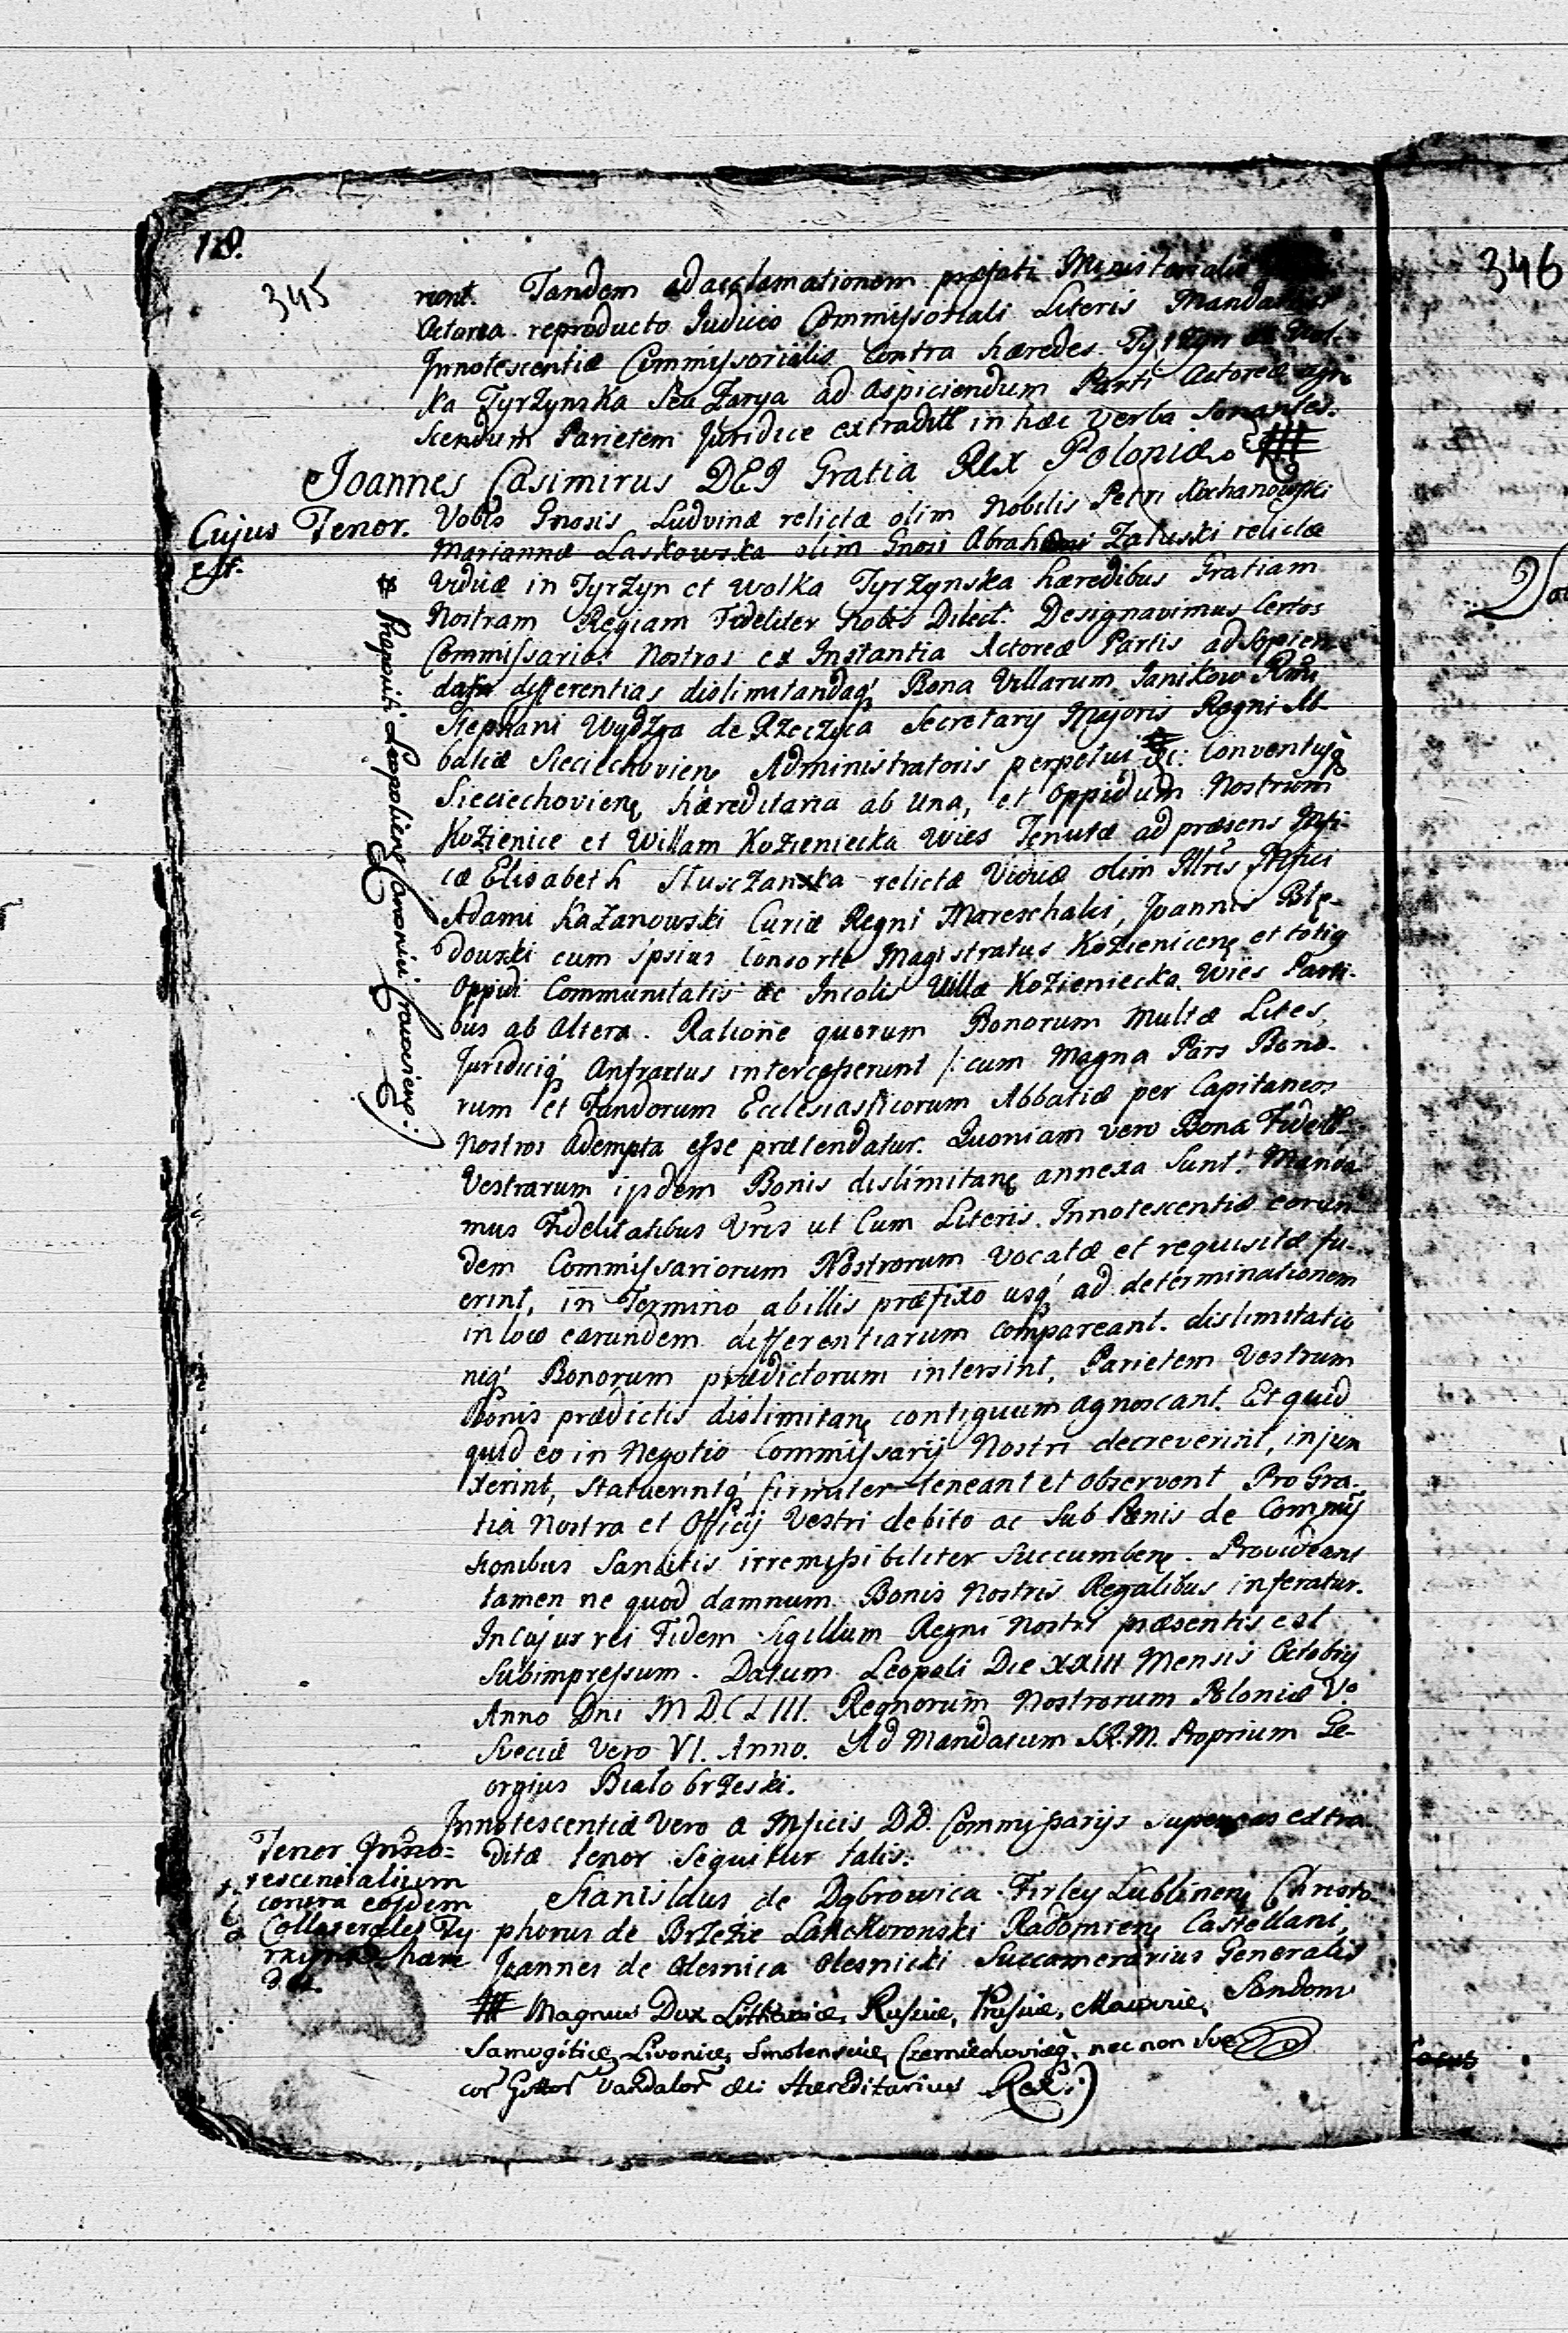 345
rent. Tandem ad acclamationem præfati Ministerialis
Actorea reproducto Iudicio Commissoriali Literis
Innotescentiæ Commissorialis contra hæredes Tyrzyn et Wol-
ka Tyrzynska Seu Zarya ad aspiciendum Parti Actoreæ agno
scendum Parietem Juridice extradill in hæc verba sonantes.
Joannes Casimirus DEI Gratia REX Poloniæ
Cujus Tenor
est.
Vobis Gnosis Ludvinæ relictæ olim Nobilis Petri Kochanowski
Mariannæ Laskowska olim Gnosi Abrahami Zatuski relictæ
Viduæ in Tyrzyn et Wolka Tyrzynska hæredibus Gratiam
Nostram Regiam Fideliter Nobis Dilect. Designavimus Certos
Commissarios Nostros ex Instantia Actoreæ Partis ad sopien-
das differentias dislimitandaq; Bona Villarum Janikow Rmi
Stephani Wydzga de Rzeczyca Secretarij Majoris Regni Ab-
batiæ Sieciechovien Administratoris perpetui &c: Conventusq;
Præpositi Leopolien Canonici Cracovien:
Sieciechovien hæreditaria ab una, et Oppidum Nostrum
Kozienice et Willam Kozieniecka Wies Tenutæ ad præsens Mfi-
cæ Elisabeth Sluszczanska relictæ Viduæ olim Illris Mfici
Adami Kazanowski Curiæ Regni Mareschalci, Joannis Błę-
dowski cum ipsius Consorte Magistratus Kozienicen et totiq
Oppidi Communitatis ac Incolis Villæ Kozieniecka Wies Parti-
bus ab Altera. Ratione quorum Bonorum Multæ Lites,
Juridiciq; Anfractus intercesserunt /: cum Magna Pars Bono-
rum et Fundorum Ecclesiasticorum Abbatiæ per Capitaneos
Nostros adempta esse prætendatur. Quoniam vero Bona Fidelit-
Vestrarum ijsdem Bonis dislimitan annexa sunt: Manda-
mus Fidelitatibus Vris ut Cum Literis Innotescentiæ eorun
dem Commissariorum Nostrorum vocatæ et requisitæ fu-
erint, in Termino ab illis præfixo usq; ad determinationem
in loco earundem differentiarum compareant. dislimitatio
niq; Bonorum prædictorum intersint, Parietem Vestrum
Bonis prædictis dislimitan contiguum agnoscant. Et quid
quid eo in Negotio Commissarij Nostri decreverint, injun
xerint, statuerintq; firmiter teneant et observent Pro Gra-
tia Nostra et Officij Vestri debito ac Sub Pœnis de Commis
sionibus Sancitis irremissibiliter succumben. Provideant
tamen ne quod damnum Bonis Nostris Regalibus inferatur.
In Cujus rei Fidem Sigillum Regni Nostri præsentis est
Subimpressum. Datum Leopoli Die XXIII Mensis Octobris
Anno Dni M.D.C.LIII. Regnorum Nostrorum Poloniæ V.
Sveciæ Vero VI. Anno. Ad Mandatum S.R.M. Proprium Ge-
orgius Białobrzeski.
Innotescentiæ Vero a Mficis DD. Commissarijs extra
ditæ tenor sequitur talis.
Tenor Inno=
tescentialium
contra eosdem
Collaterales Ty
Stanislaus de Dąbrowica Firley Lublinen Christo-
phorus de Brzezie Lanckoronski Radomien Castellani,
Joannes de Olesnica Olesnicki Succamerarius Generalis
Sandom
Magnus Dux Lithuaniæ, Russiæ, Prussiæ, Masoviæ,
Samogitiæ, Livoniæ, Smolensciæ, Czerniechoviæq; nec non Sve
cor Gottor Vandalor &c: Hæreditarius Rex :)
346